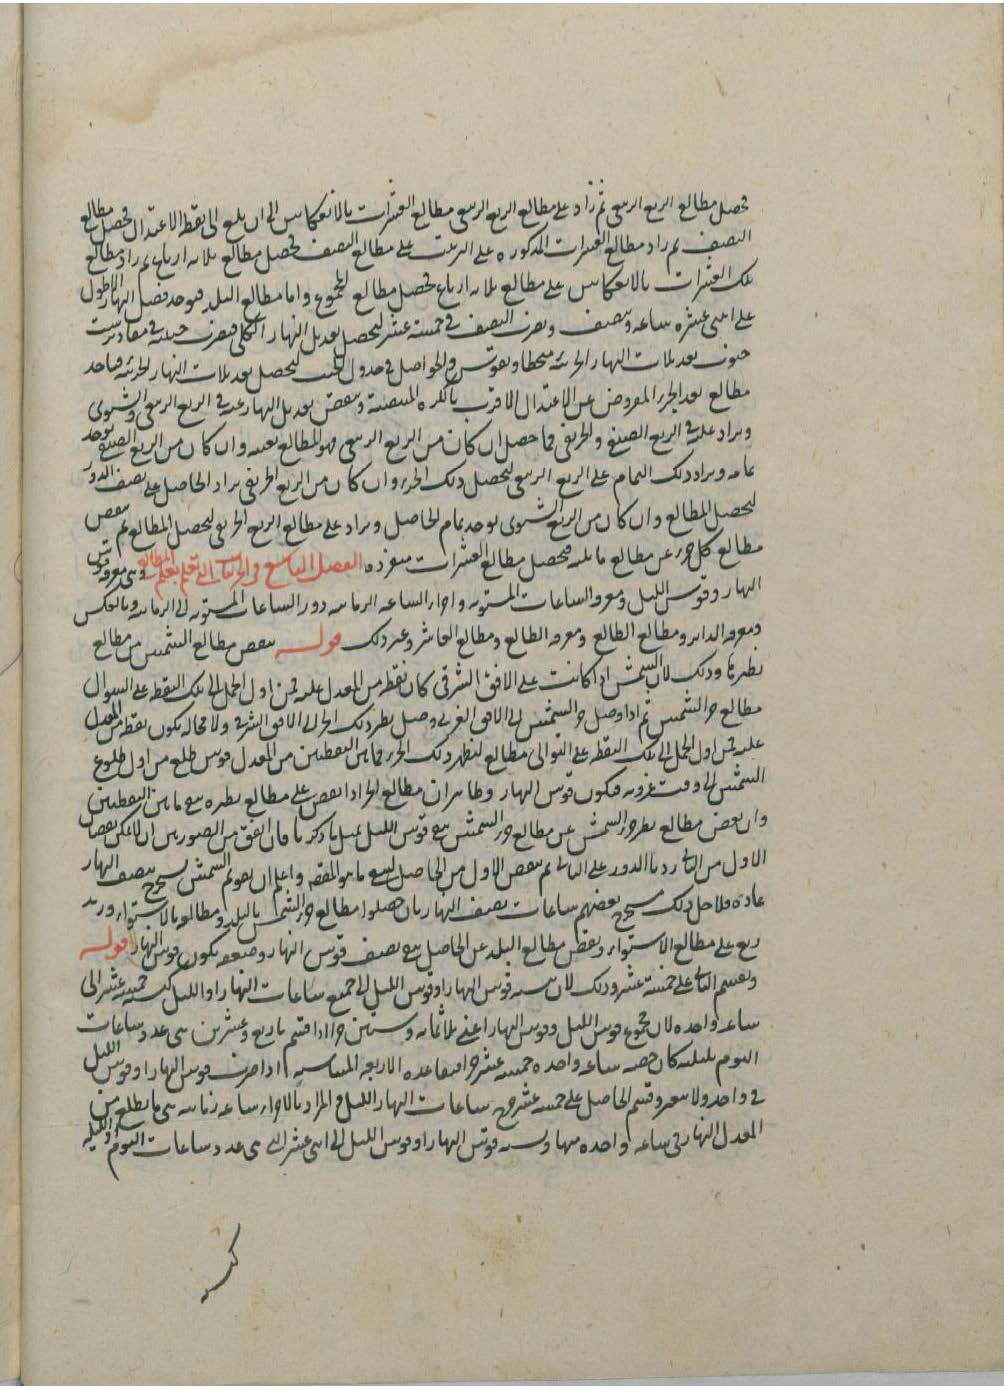 تحصل مطالع الربع الربيعي ثم زاد على مطالع الربع الربيعي مطالع العشرات بالانعكاس الى ان يبلغ الى نقطة الاعتدال فحصل مطالع
النصف ثم زاد مطالع العشرات المذكورة على الترتيب على مطالع النصف تحصل مطالع ثلاثة ارباع ثم زاد مطالع
تلك العشرات بالانعكاس على مطالع ثلاثة ارباع تحصل مطالع المجموع واما مطالع البلد فيوخذ فضل النهار الاطول
على اثنى عشرة ساعة وينصف ويضرب النصف في خمسة عشر ليحصل تعديل النهار الكلي فيضرب جيبه في
جيوب تعديلات النهار الجزئية منحطا ويقوس الحواصل في جدول الجيب ليحصل تعديلات النهار الجزئية فياخذ
مطالع بعد الجزء المفروض عن الاعتدال الاقرب بالكرة المنتصبة وينقص تعديل النهار عنه في الربع الربيعي والشتوي
ويزاد عليه في الربع الصيفي والخريفي فما حصل ان كان من الربع الربيعي فهو المطالع بعينه وان كان من الربع الصيفي يوخذ
تمامه ويزاد ذلك التمام على الربع الربيعي ليحصل ذلك الجزء وان كان من الربع الخريفي يزاد الحاصل على نصف الدور
ليحصل المطالع وان كان من الربع الشتوي يوخذ تمام الحاصل ويزاد على مطالع الربع الخريفي ليحصل المطالع ثم ينقص
مطالع كل جزء عن مطالع ما يليه فيحصل مطالع العشرات منفردة الفصل التاسع في الجزئيات التي تعلم بعلم المطالع وهي معرفة قوس
النهار وقوس الليل ومعرفة الساعات المستوية واجزاء الساعة الزمانية ودور الساعات المستوية الى الزمانية وبالعكس
ومعرفة الداير ومطالع الطالع ومعرفة الطالع ومطالع العاشر وغير ذلك قوله ينقص مطالع الشمس من مطالع
نظيرها وذلك لان الشمس اذا كانت على الافق الشرقي كان نقطة من المعدل عليه فمن اول الحمل الى تلك النقطة على التوالي
مطالع جزء الشمس ثم اذا وصل جزء الشمس الى الافق الغربي وصل نظير ذلك الجزء الى الافق الشرقي ولا محالة يكون نقطة من المعدل
عليه فمن اول الحمل الى تلك النقطة على التوالي مطالع لنظير ذلك الجزء فما بين النقطتين من المعدل قوس طلع من اول طلوع
الشمس الى وقت غروبه فيكون قوس النهار وظاهر ان مطالع الجزء اذا نقص على مطالع نظيره بقي ما بين النقطتين
وان نقص مطالع نظير جزء الشمس عن مطالع جزء الشمس بقي قوس الليل بمثل ما ذكرنا فان اتفق من الصورتين ان لا يمكن نقصان
الاول من الثاني زدنا الدور على الثاني ثم ننقص الاول من الحاصل ليبقى ما هو المقصد واعلم ان تقويم الشمس يستخرج بنصف النهار
عادة فلاجل ذلك يستخرج بعضهم ساعات نصف النهار بان حصلوا مطالع جزء الشمس بالبلد ومطالعه بالاستواء وزيد
ربع على مطالع الاستواء ونقص مطالع البلد عن الحاصل بقي نصف قوس النهار وضعفه يكون قوس النهار قوله
ونقسم الباقي على خمسة عشر وذلك لان نسبة قوس النهار او قوس الليل الى جميع ساعات النهار او الليل كنسبة خمسة عشر الى
ساعة واحدة لان مجموع قوس الليل وقوس النهار اعني ثلاثمائة وستين جزءا اذا قسم باربع وعشرين هي عدد ساعات
اليوم بليلته كان حصة ساعة واحدة خمسة عشر جزءا فبقاعدة الاربعة المتناسبة اذا ضرب قوس النهار او قوس الليل
في واحد ولا يتغير وقسم الحاصل على خمسة عشر خرج ساعات النهار او الليل والمراد بالاجزاء ساعة زمانية هي ما يطلع من
المعدل النهار في ساعة واحدة منها ونسبة قوس النهار او قوس الليل الى اثنى عشر التي هي عدد ساعات اليوم او الليلة
كنسبة